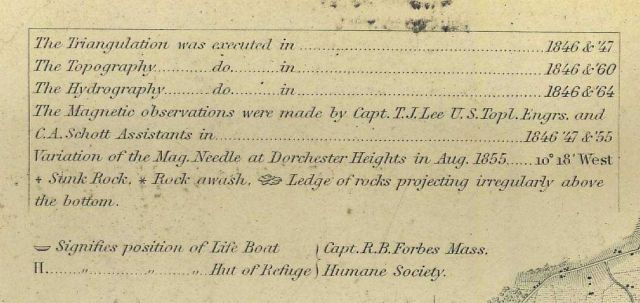 The Triangulation was executed in ........................ 1846 & '47
The Topography ............ do ............ in ........................ 1846 & '60
The Hydrography ............ do ............ in ........................ 1846 & '64
The Magnetic observations were made by Capt. T.J. Lee U.S. Topl. Engrs. and
C.A. Schott Assistants in ........................ 1846 '47 & '55
Variation of the Mag. Needle at Dorchester Heights in Aug. 1855 ..... 10° 18' West
+ Sunk Rock, * Rock awash, Ledge of rocks projecting irregularly above
the bottom.
Signifies position of Life Boat } Capt. R.B. Forbes Mass.
H. ...... " ............ " ...... " Hut of Refuge } Humane Society.